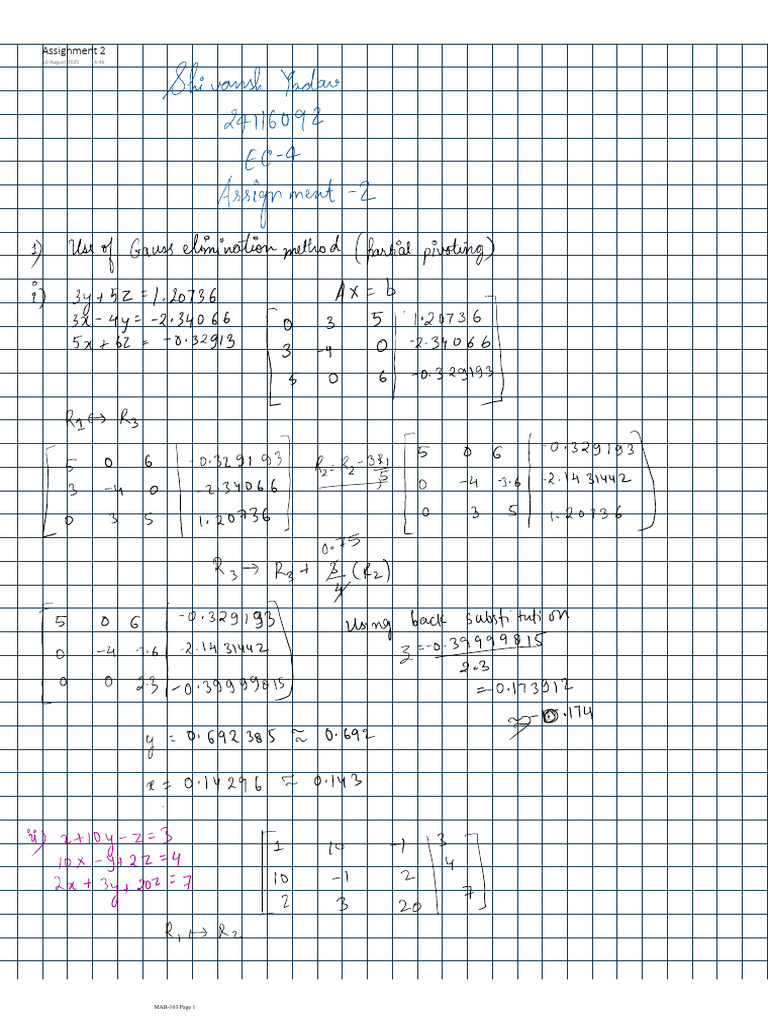 Assignment 2
10 August 2025 8:46
Shivansh Yadav
24116092
EC-4
Assignment-2
1) Use of Gauss elimination method (partial pivoting)
i) 3y+5z=1.20736
3x-4y=-2.34066
5x+6z=-0.32913
Ax=b
0 3 5 1.20736
3 -4 0 -2.34066
5 0 6 -0.329193
R1↔R3
5 0 6 -0.329193
3 -4 0 -2.34066
0 3 5 1.20736
R2=R2-3R1/5
5 0 6 -0.329193
0 -4 -3.6 -2.1431442
0 3 5 1.20736
0.75
R3→R3+3/4(R2)
5 0 6 -0.329193
0 -4 -3.6 -2.1431442
0 0 2.3 -0.39999815
Using back substitution
z=-0.39999815/2.3
=-0.173912
≈-0.174
y=0.692385≈0.692
x=0.14296≈0.143
ii) x+10y-z=3
10x-y+2z=4
2x+3y+20z=7
y
1 10 -1 3
10 -1 2 4
2 3 20 7
R1↔R2
MAB-103 Page 1